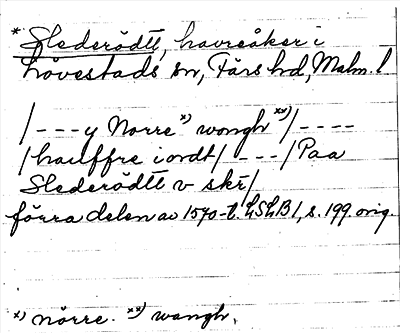 * Slederödtt, havreåker i
Lövestads sn, Färs hd, Malm. l
/ - - - y Norre *) wongh **) / - - - -
/ hauffre iordt / - - - / Paa
Slederödtt v skr /
förra delen av 1570-t. LSLB 1, s. 199 orig.
*) nörre. **) wangh.